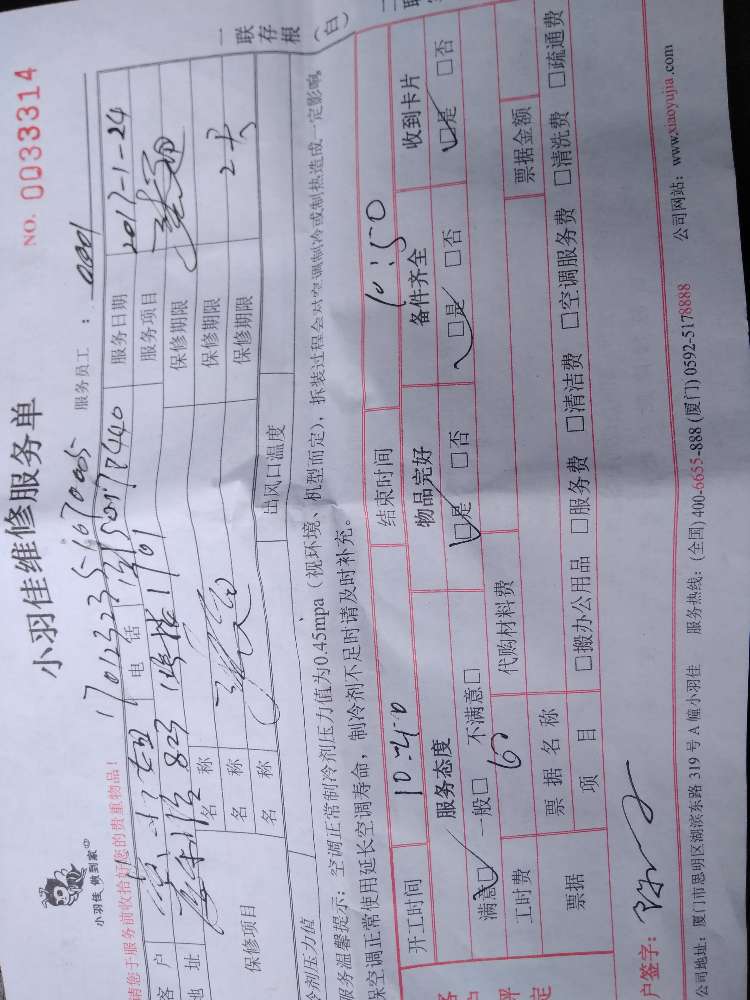 小羽佳 做到家
小羽佳维修服务单
NO. 0033314
一联存根（白）
请您于服务前收拾好您的贵重物品！
服务员工：
客户 电话 服务日期 2017-1-24
地址 823 1701 服务项目
保修项目 名称 保修期限
名称 保修期限 2天
名称 保修期限
冷剂压力值 出风口温度
服务温馨提示：空调正常制冷剂压力值为0.45mpa（视环境、机型而定），拆装过程会对空调制冷或制热造成一定影响
保空调正常使用延长空调寿命，制冷剂不足时请及时补充。
开工时间 10:40 结束时间 10:50
服务态度 物品完好 备件齐全 收到卡片
满意□ 一般□ 不满意□ □是 □否 □是 □否 □是 □否
工时费 60 代购材料费
票据 票据名称 票据金额
项目 □搬办公用品 □服务费 □清洁费 □空调服务费 □清洗费 □疏通费
户签字：
公司地址：厦门市思明区湖滨东路 319 号 A 幢小羽佳 服务热线：(全国) 400-6655-888 (厦门) 0592-5178888 公司网站：www.xiaoyujia.com